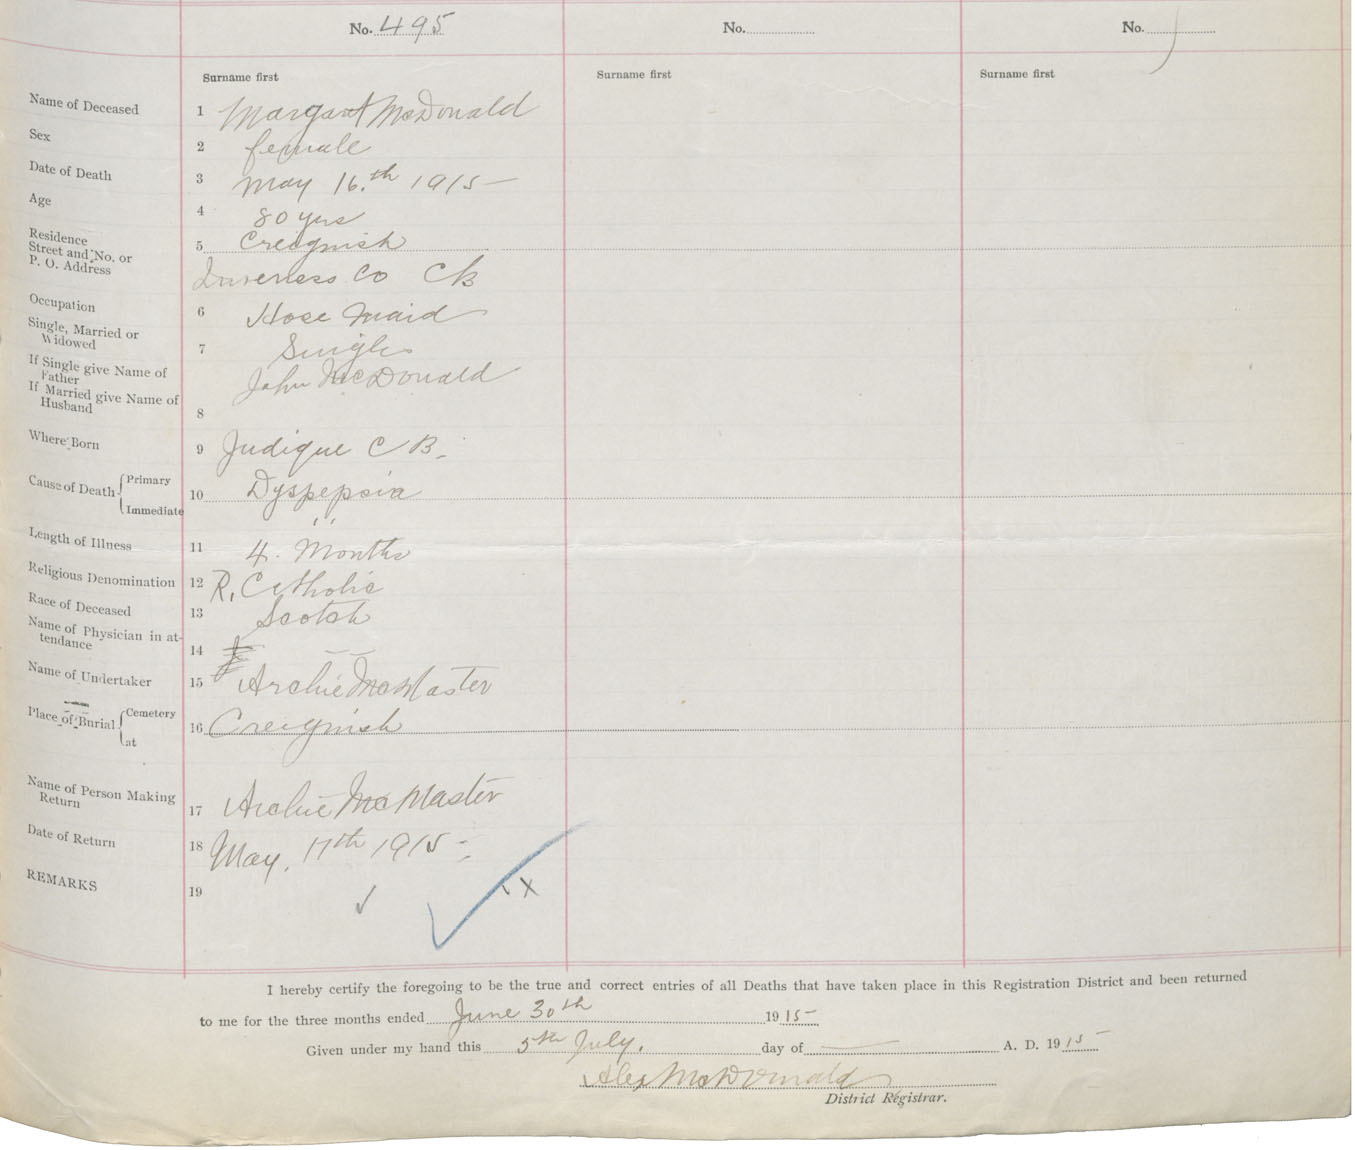 No. 495
No.
No.
Surname first
Surname first
Surname first
Name of Deceased 1 Margaret McDonald
Sex 2 female
Date of Death 3 May 16.th 1915
Age 4 80 yrs
Residence
Street and No. or
P. O. Address
5 Creignish
Inverness Co CB
Occupation 6 Hose maid
Single, Married or
Widowed
7 Single
If Single give Name of
Father
John McDonald
If Married give Name of
Husband
8
Where Born 9 Judique C B.
Cause of Death Primary
10 Dyspepsia
Immediate
" 
Length of Illness 11 4. Months
Religious Denomination 12 R. Catholic
Race of Deceased 13 Scotch
Name of Physician in at-
tendance
14
Name of Undertaker 15 Archie McMaster
Place of Burial Cemetery
at
16 Creignish
Name of Person Making
Return
17 Archie McMaster
Date of Return 18 May. 17th 1915
REMARKS 19
x
I hereby certify the foregoing to be the true and correct entries of all Deaths that have taken place in this Registration District and been returned
to me for the three months ended June 30th 1915
Given under my hand this 5th July. day of A. D. 1915
Alex McDonald
District Registrar.